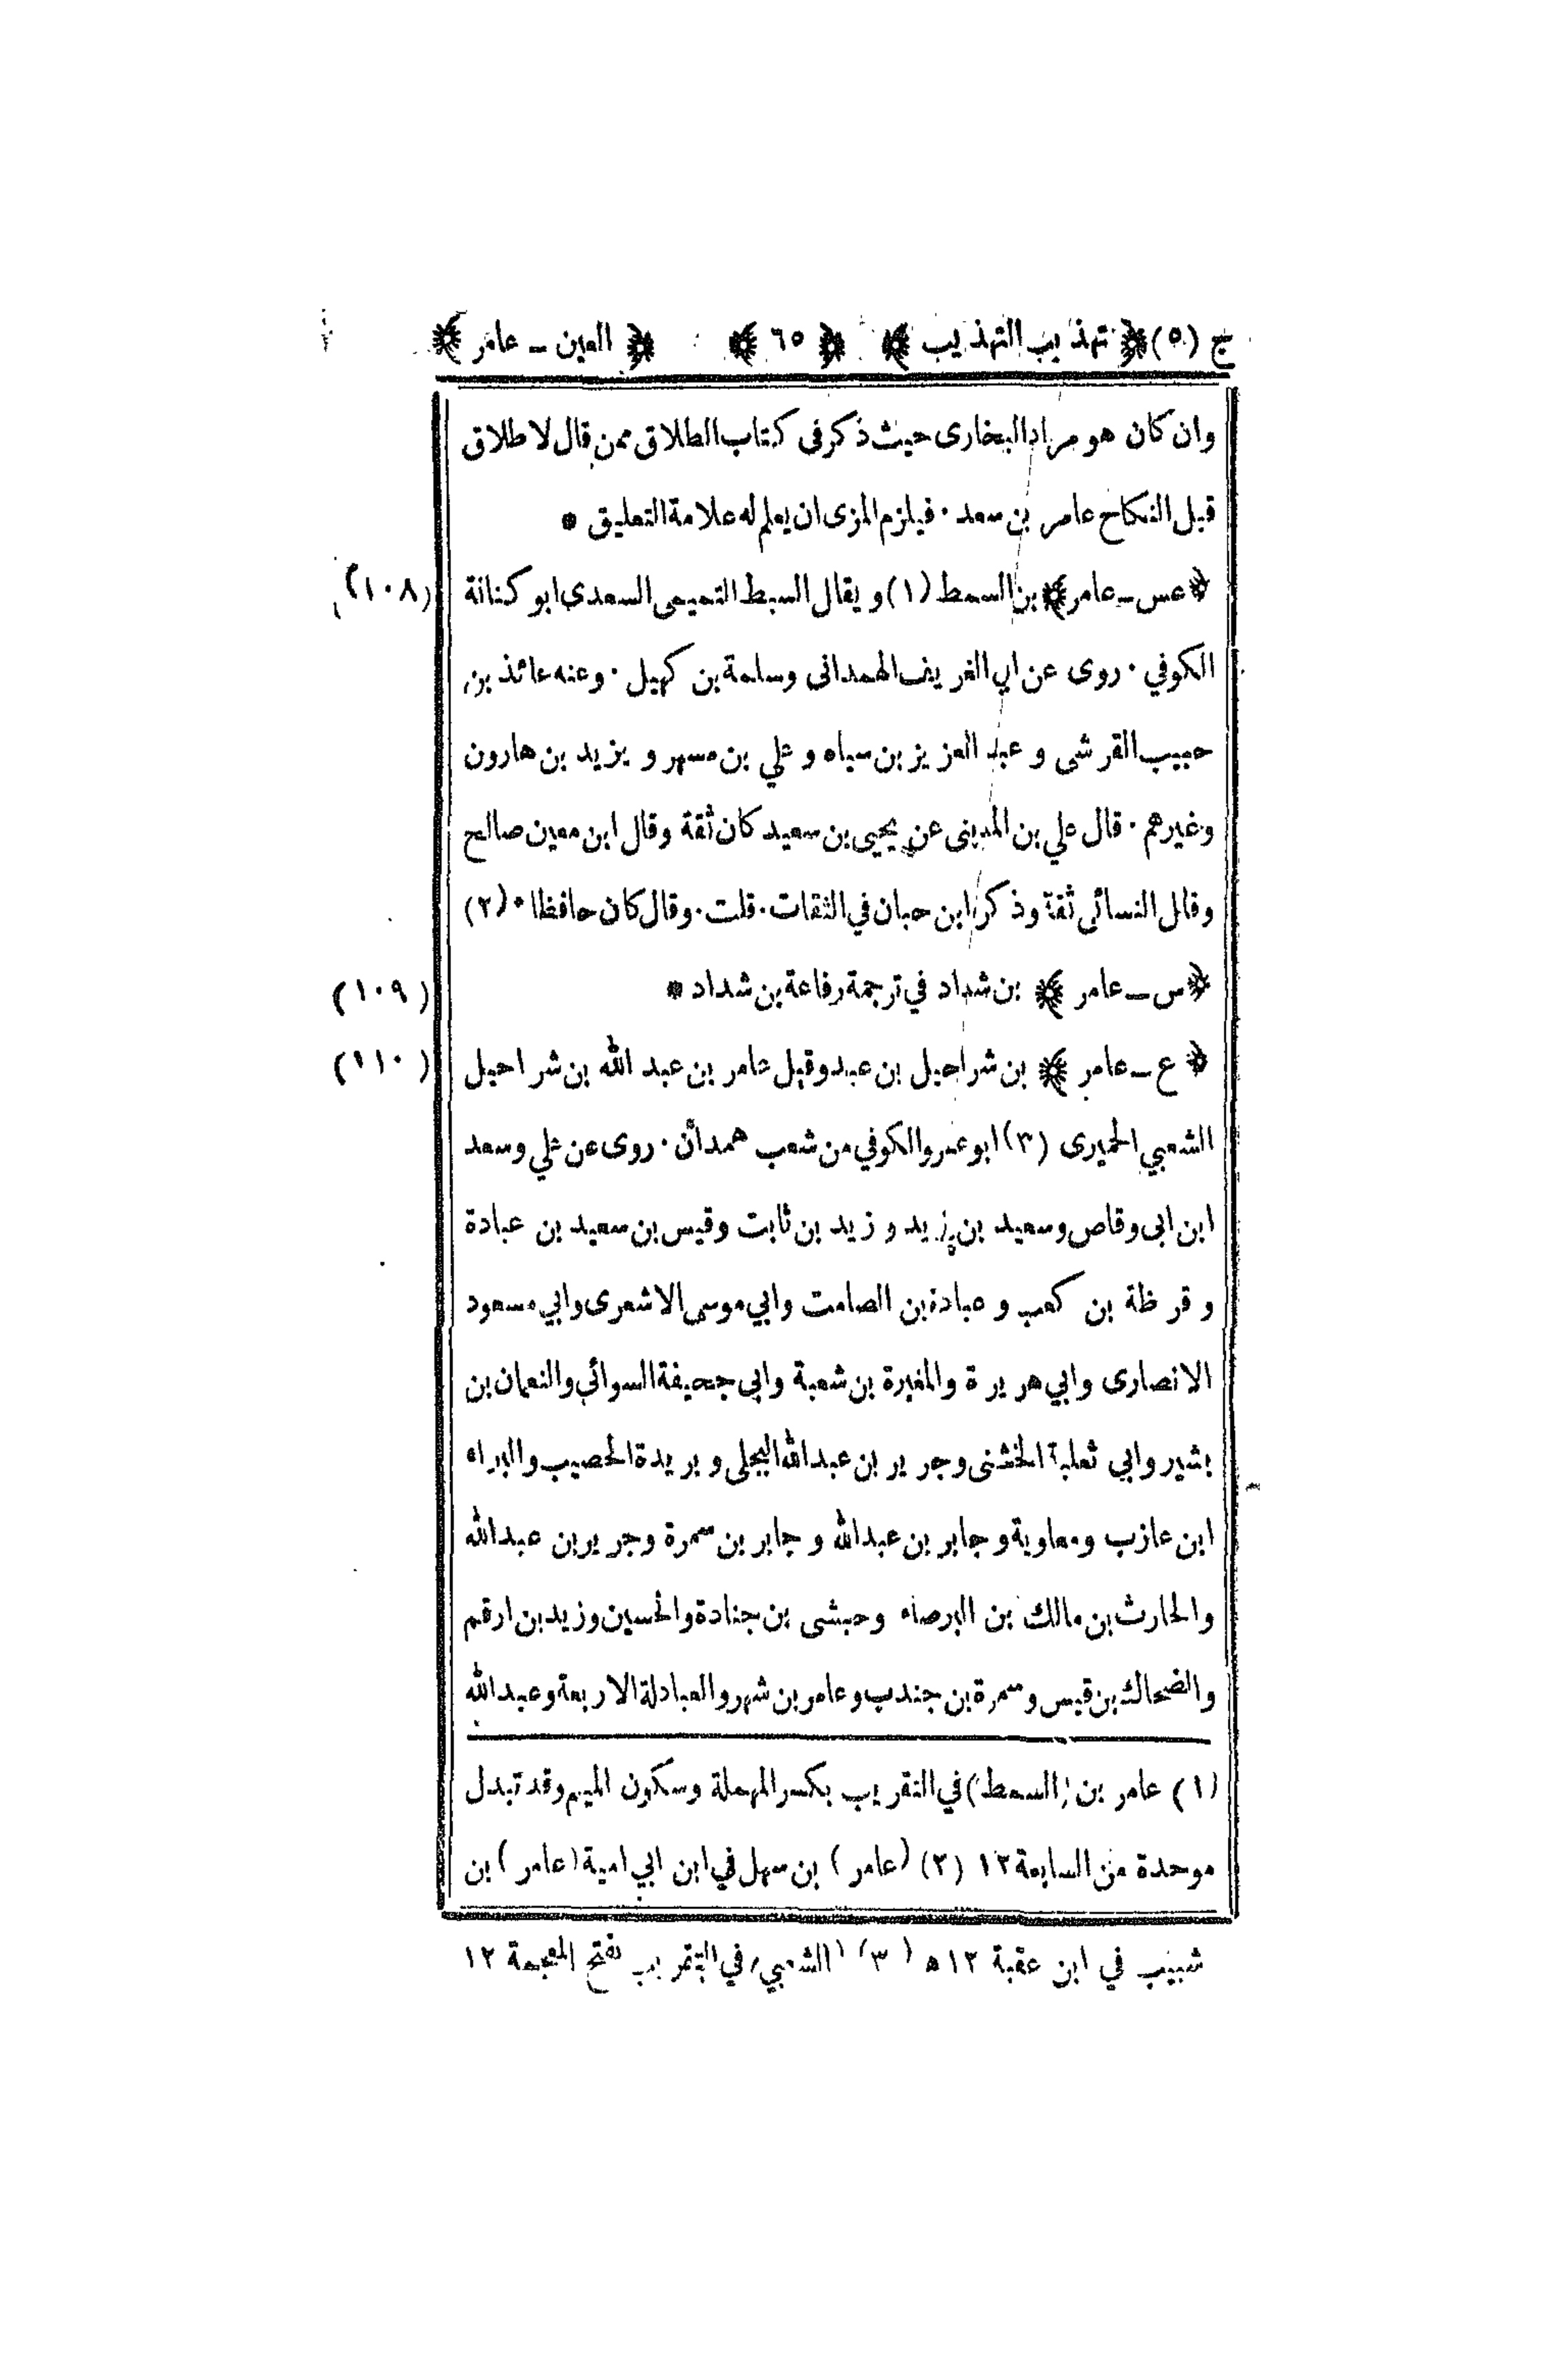 ج (٥) ﴿ تهذيب التهذيب ﴾ ﴿ ٦٥ ﴾ ﴿ العين ـ عامر ﴾
وان كان هو مراد البخارى حيث ذكر فى كتاب الطلاق ممن قال لا طلاق
قبل النكاح عامر بن سعد ٠ فيلزم المزى ان يعلم له علامة التعليق *
﴿ عس ـ عامر ﴾ بن السمط (١) و يقال السبط التميمى السعدي ابو كنانة (١٠٨)
الكوفي ٠ روى عن ابي الغريف الهمدانى وسلمة بن كهيل ٠ وعنه عائذ بن
حبيب القرشى و عبد العزيز بن سياه و علي بن مسهر و يزيد بن هارون
وغيرهم ٠ قال علي بن المدينى عن يحيى بن سعيد كان ثقة وقال ابن معين صالح
وقال النسائى ثقة وذكر ابن حبان في الثقات ٠ قلت ٠ وقال كان حافظا ٠ (٢)
﴿ س ـ عامر ﴾ بن شداد في ترجمة رفاعة بن شداد * (١٠٩)
﴿ ع ـ عامر ﴾ بن شراحيل بن عبد وقيل عامر بن عبد الله بن شراحيل (١١٠)
الشعبي الحميرى (٣) ابو عمرو الكوفي من شعب همدان ٠ روى عن علي وسعد
ابن ابى وقاص وسعيد بن زيد و زيد بن ثابت وقيس بن سعيد بن عبادة
و قرظة بن كعب و عبادة بن الصامت وابي موسى الاشعرى وابي مسعود
الانصارى وابي هريرة والمغيرة بن شعبة وابى جحيفة السوائي والنعمان بن
بشير وابي ثعلبة الخشنى وجرير بن عبد الله البجلى و بريدة الحصيب والبراء
ابن عازب ومعاوية و جابر بن عبد الله و جابر بن سمرة وجرير بن عبد الله
والحارث بن مالك بن البرصاء وحبشى بن جنادة والحسين وزيد بن ارقم
والضحاك بن قيس وسمرة بن جندب وعامر بن شهر والعبادلة الاربعة وعبد الله
(١) عامر بن (السمط) في التقريب بكسر المهملة وسكون الميم وقد تبدل
موحدة من السابعة ١٢ (٢) (عامر) بن سهل في ابن ابي امية (عامر) بن
شبيب في ابن عقبة ١٢ه (٣) (الشعبي) في التقريب بفتح المعجمة ١٢